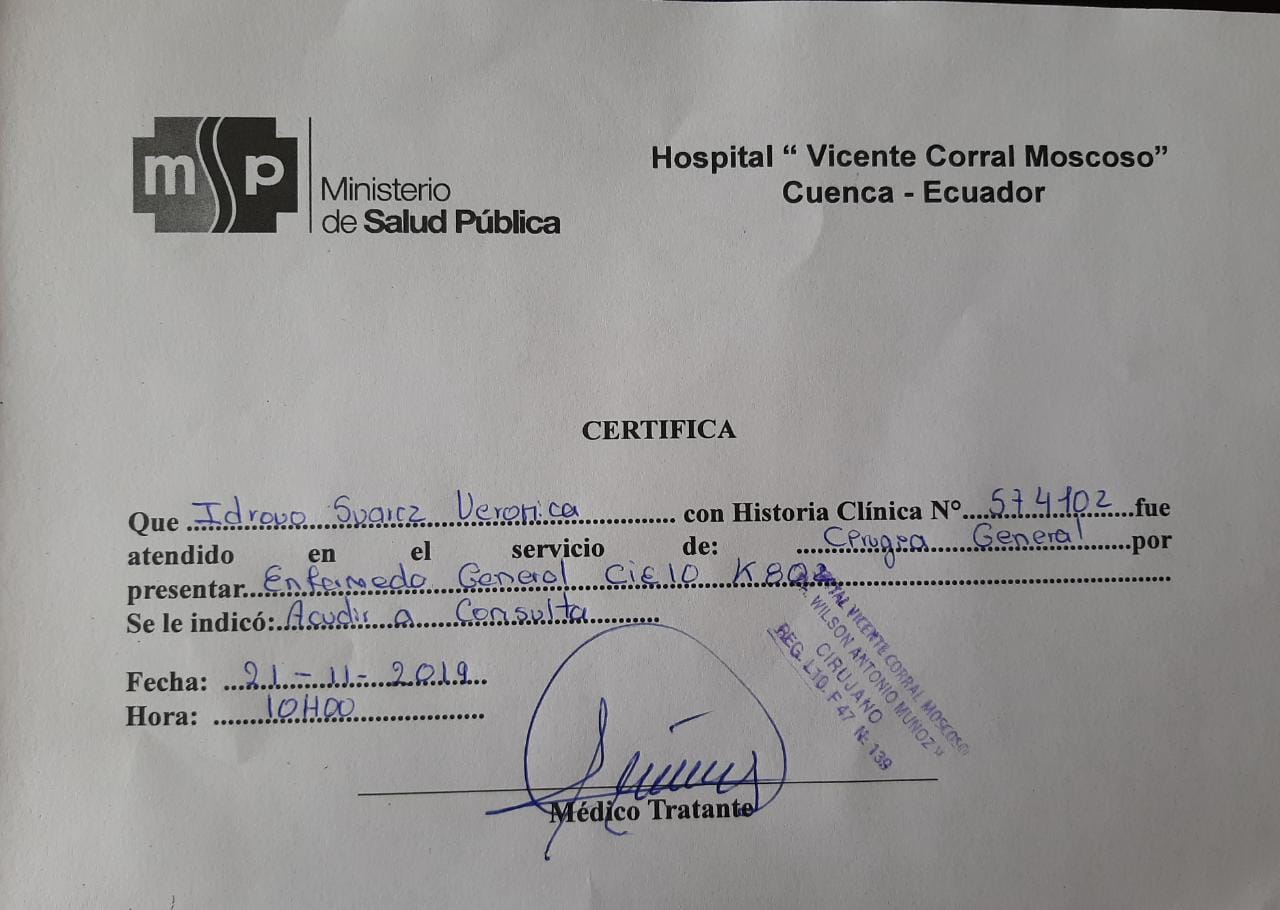 msp
Ministerio
de Salud Pública
Hospital “ Vicente Corral Moscoso”
Cuenca - Ecuador
CERTIFICA
Que Idrovo Suarez Veronica con Historia Clínica N° 574102 fue
atendido en el servicio de: Cirugia General por
presentar Enfermedad General Cie10 K802
Se le indicó: Acudir a Consulta
Fecha: 21-11-2019
Hora: 10H00
VICENTE CORRAL MOSCOSO
WILSON ANTONIO MUÑOZ
CIRUJANO
REG. L10. F 47 № 139
Médico Tratante